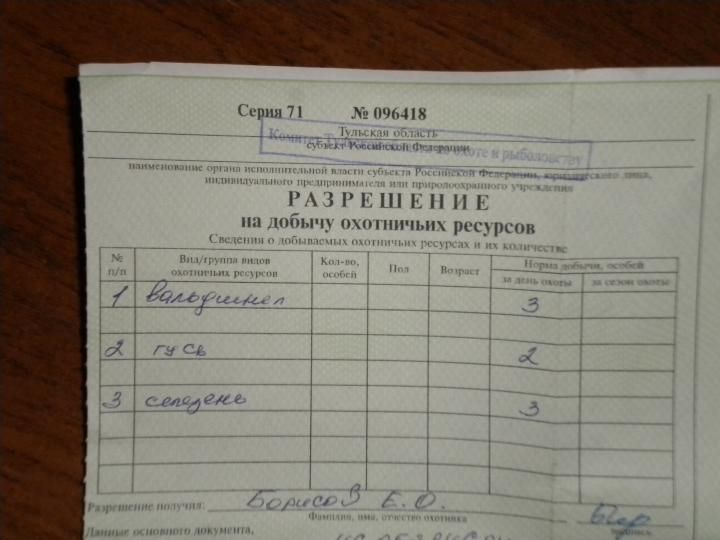 Серия 71 № 096418
Тульская область
Комитет Тульской области по охоте и рыболовству
субъект Российской Федерации
наименование органа исполнительной власти субъекта Российской Федерации, юридического лица,
индивидуального предпринимателя или природоохранного учреждения
РАЗРЕШЕНИЕ
на добычу охотничьих ресурсов
Сведения о добываемых охотничьих ресурсах и их количестве
№ п/п Вид/группа видов охотничьих ресурсов Кол-во, особей Пол Возраст Норма добычи, особей
за день охоты за сезон охоты
1 вальдшнеп 3
2 гусь 2
3 селезень 3
Разрешение получил: Борисов Е. О.
Фамилия, имя, отчество охотника подпись
Данные основного документа,